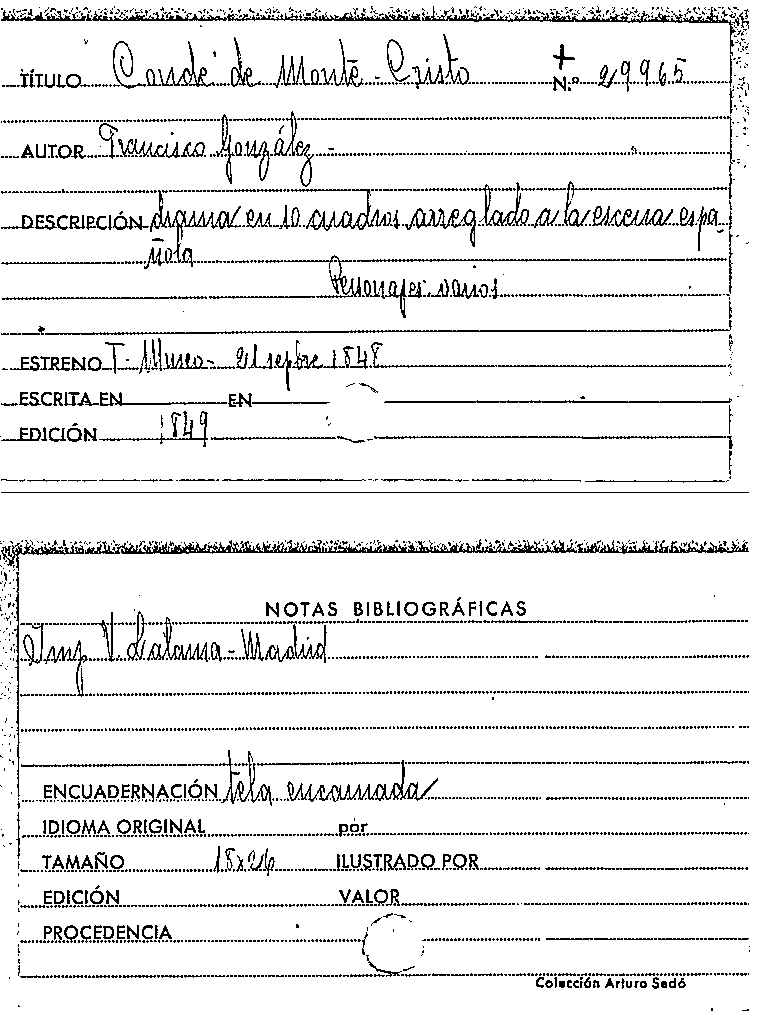 TÍTULO Conde de Monte-Cristo + N.º 29965
AUTOR Francisco González-
DESCRIPCIÓN drama en 10 cuadros arreglado a la escena espa-
ñola
Personajes varios
ESTRENO T. Museo - 21 sepbre 1848
ESCRITA EN EN
EDICIÓN 1849
NOTAS BIBLIOGRÁFICAS
Imp V. Lalama - Madrid
ENCUADERNACIÓN tela encarnada
IDIOMA ORIGINAL por
TAMAÑO 18x26 ILUSTRADO POR
EDICIÓN VALOR
PROCEDENCIA
Colección Arturo Sedó